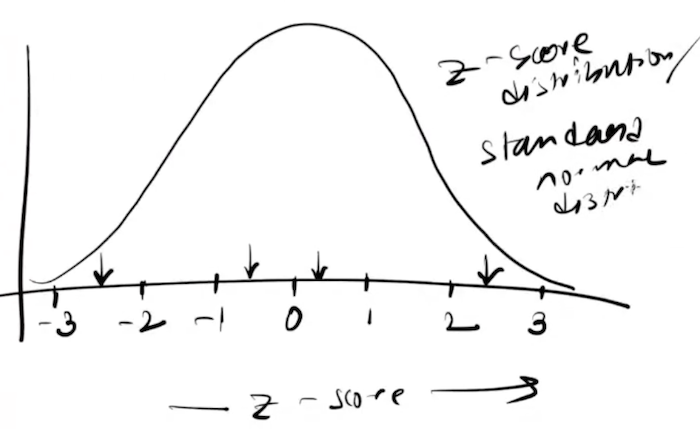 z-score
distribution/
standard
normal
distri
-3 -2 -1 0 1 2 3
z-score